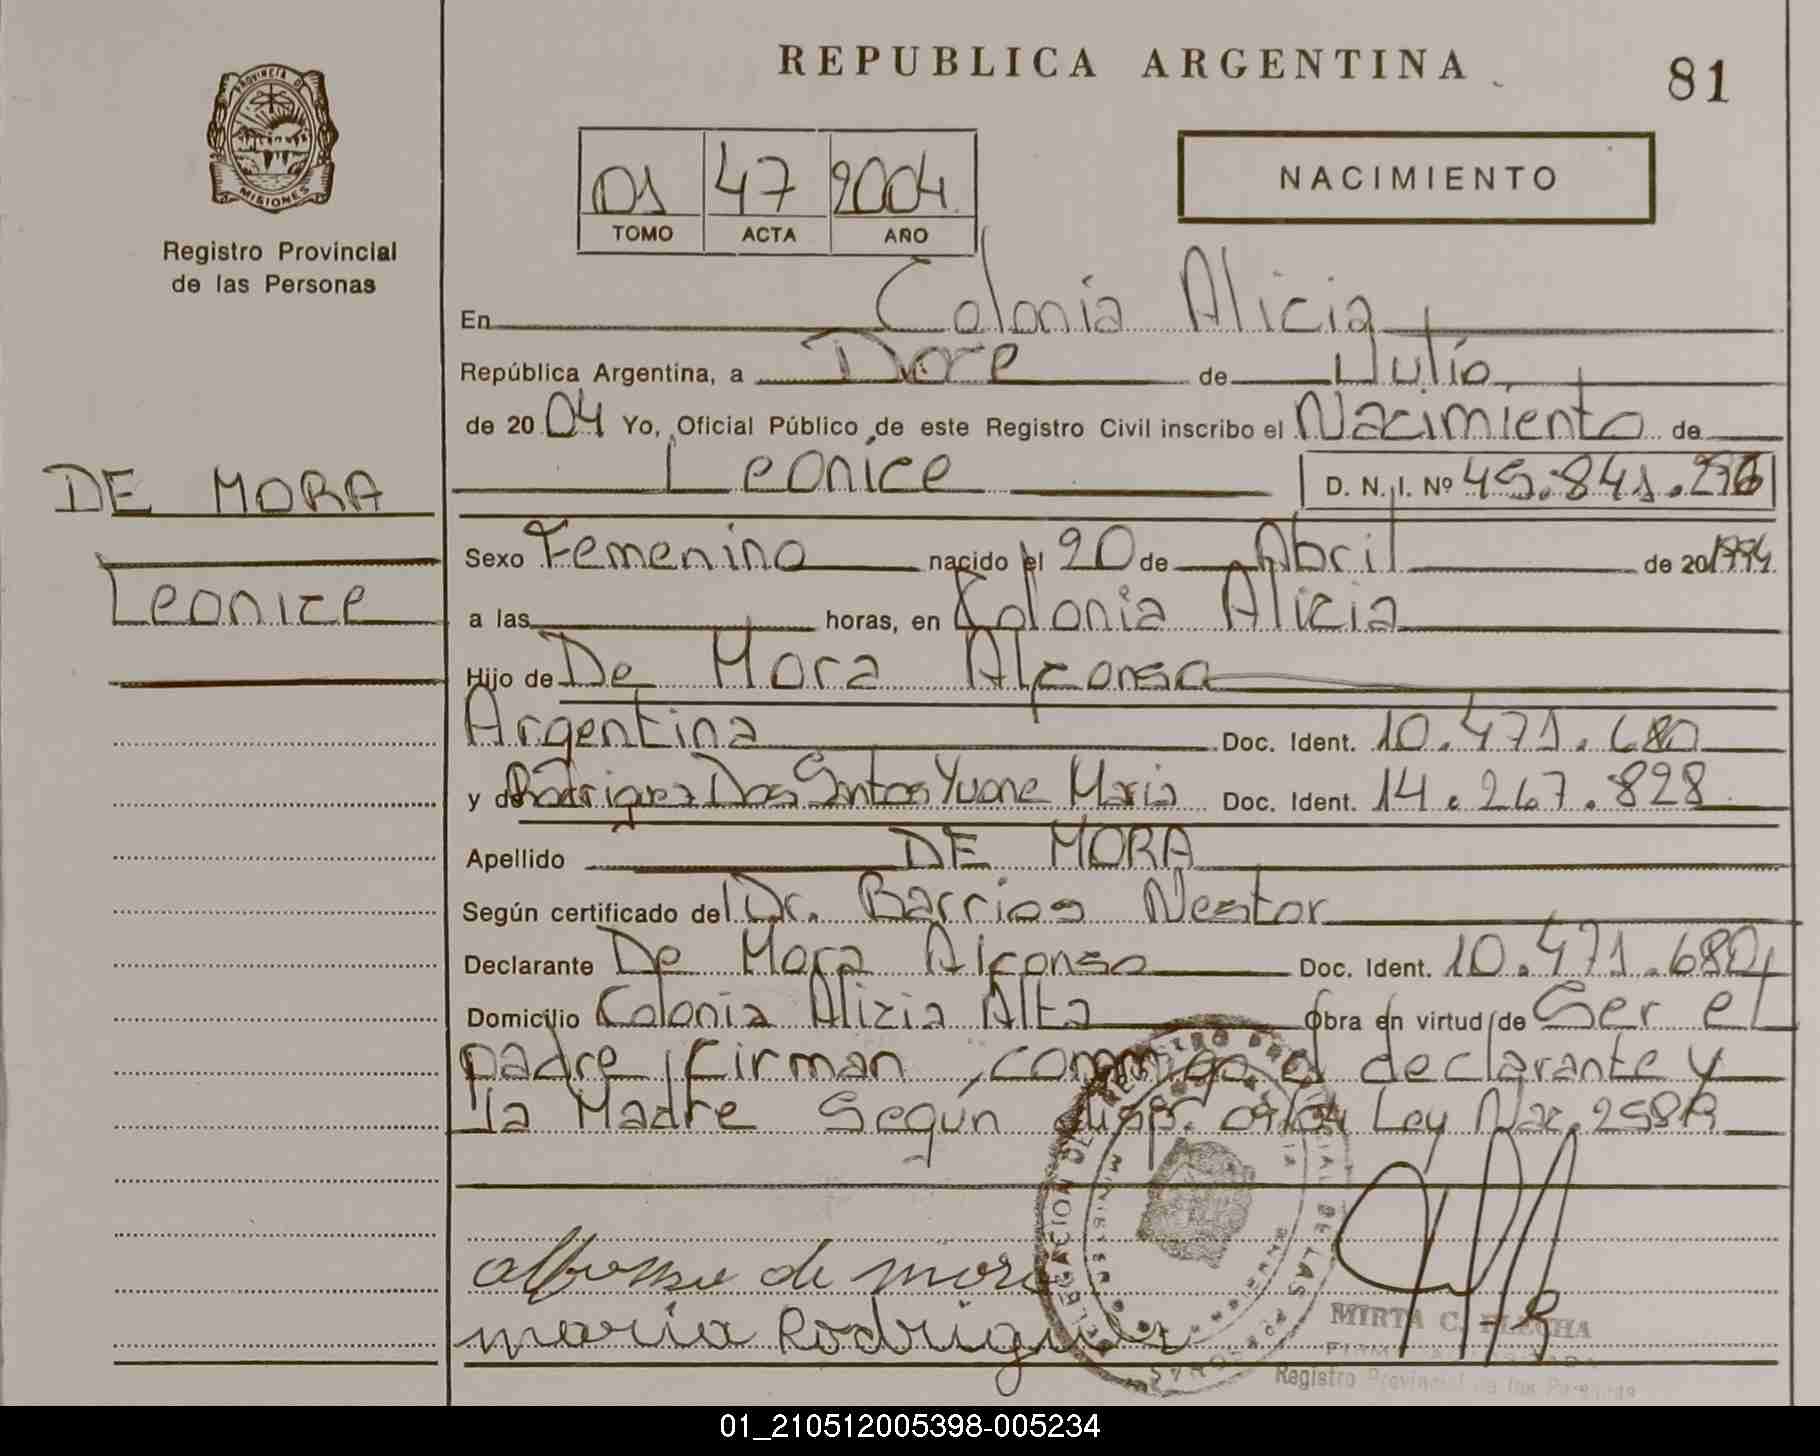 REPUBLICA ARGENTINA
81
PROVINCIA DE
MISIONES
Registro Provincial
de las Personas
01 47 2004
TOMO ACTA AÑO
NACIMIENTO
En Colonia Alicia
República Argentina, a Doce de Julio
de 2004 Yo, Oficial Público de este Registro Civil inscribo el Nacimiento de
Leonice D. N. I. Nº 45.841.276
DE MORA
Leonice
Sexo Femenino nacido el 20 de Abril de 20 1994
a las horas, en Colonia Alicia
Hijo de De Mora Alfonso
Argentina Doc. Ident. 10.471.680
y de Rodriguez Dos Santos Yvone Maria Doc. Ident. 14.267.828
Apellido DE MORA
Según certificado del Dr. Barrios Nestor
Declarante De Mora Alfonso Doc. Ident. 10.471.680
Domicilio Colonia Alicia Alta Obra en virtud de Ser el
padre, firman, conmigo el declarante y
la Madre Según disp. 09/04 Ley Nac.
alfonso de mora
maria Rodriguez
MIRTA C. FLECHA
Registro Provincial de las Personas
01_210512005398-005234